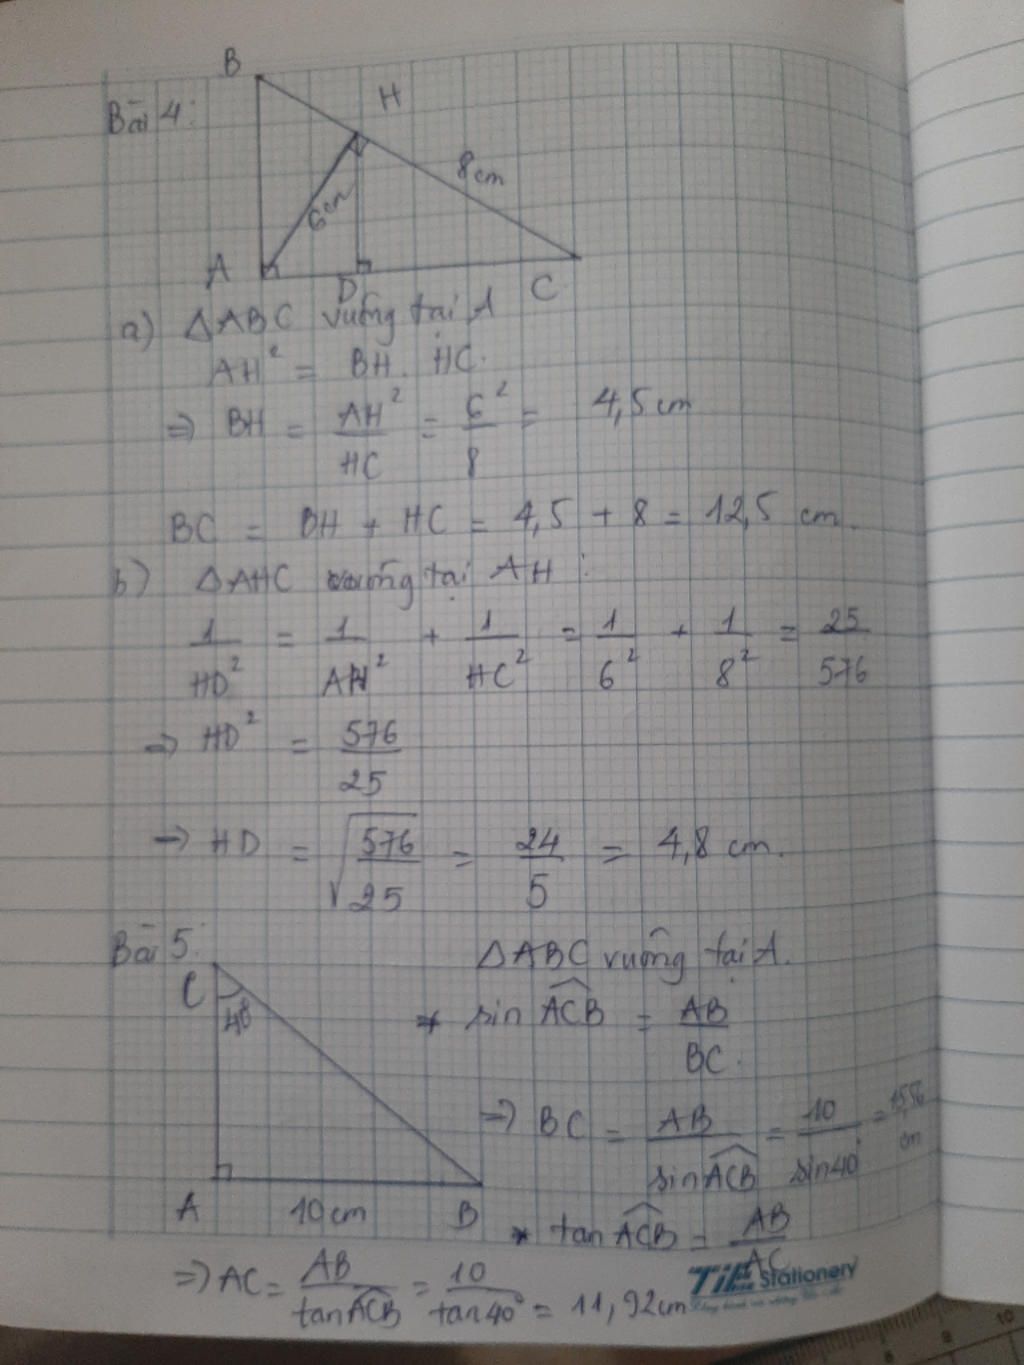 B
Bài 4:
H
8cm
6cm
A
D
C
a) ΔABC vuông tại A
AH² = BH . HC.
⇒ BH = AH²/HC = 6²/8 = 4,5 cm
BC = BH + HC = 4,5 + 8 = 12,5 cm.
b) ΔAHC vuông tại AH :
1/HD² = 1/AH² + 1/HC² = 1/6² + 1/8² = 25/576
⇒ HD² = 576/25
⇒ HD = √(576/25) = 24/5 = 4,8 cm.
Bài 5:
ΔABC vuông tại A.
C
40°
* sin ACB = AB/BC.
⇒ BC = AB/sin ACB = 10/sin 40° = 15,56 cm
A
10cm
B
* tan ACB = AB/AC
⇒ AC = AB/tan ACB = 10/tan 40° = 11,92cm
TiE Stationery
8
9
10